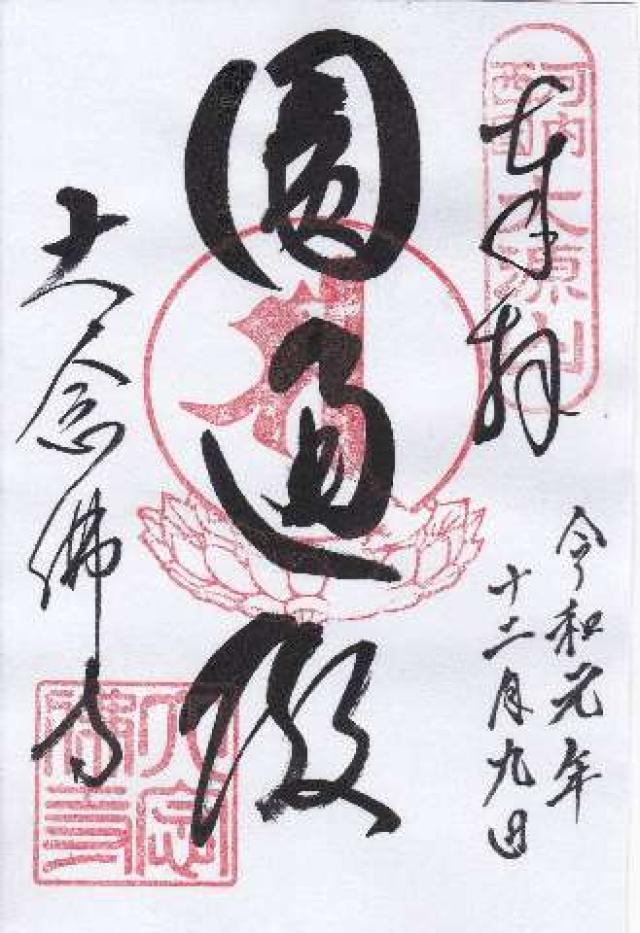 河内
西国
大源山
奉拝
令和元年
十二月九日
圓通殿
大念佛寺
大念
佛寺